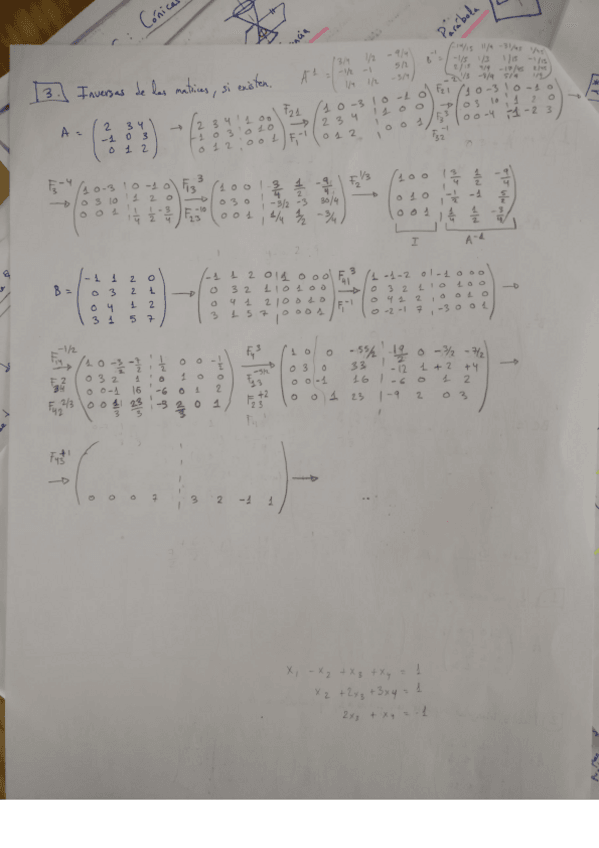 : Cónicas
Parábola
3. Inversas de las matrices, si existen.
A⁻¹ = ( 3/4 1/2 -9/4
-1/2 -1 5/2
1/4 1/2 -3/4 )
B⁻¹ =
A = ( 2 3 4
-1 0 3
0 1 2 )
→ ( 2 3 4 | 1 0 0
-1 0 3 | 0 1 0
0 1 2 | 0 0 1 )
F21 F1⁻¹ → ( 1 0 -3 | 0 -1 0
2 3 4 | 1 0 0
0 1 2 | 0 0 1 )
F21 → ( 1 0 -3 | 0 -1 0
0 3 10 | 1 2 0
0 0 -4 | -1 -2 3 ) →
→ ( 1 0 -3 | 0 -1 0
0 3 10 | 1 2 0
0 0 1 | 1/4 1/2 -3/4 )
F13³ F23⁻¹⁰ → ( 1 0 0 | 3/4 1/2 -9/4
0 3 0 | -3/2 -3 30/4
0 0 1 | 1/4 1/2 -3/4 )
F2^1/3 → ( 1 0 0 | 3/4 1/2 -9/4
0 1 0 | -1/2 -1 5/2
0 0 1 | 1/4 1/2 -3/4 )
I A⁻¹
B = ( -1 1 2 0
0 3 2 1
0 4 1 2
3 1 5 7 )
→ ( -1 1 2 0 | 1 0 0 0
0 3 2 1 | 0 1 0 0
0 4 1 2 | 0 0 1 0
3 1 5 7 | 0 0 0 1 )
F41³ F1⁻¹ → ( 1 -1 -2 0 | -1 0 0 0
0 3 2 1 | 0 1 0 0
0 4 1 2 | 0 0 1 0
0 -2 -1 7 | -3 0 0 1 ) →
0 3 2 1 | 0 1 0 0
0 0 -1 16 | -6 0 1 2
F4³ → ( 1 0 0 -55/2 | 19/2 0 -3/2 -7/2
0 3 0 33 | -12 1 +2 +4
0 0 -1 16 | -6 0 1 2
0 0 1 23 | -9 2 0 3 ) →
0 0 0 7 | 3 2 -1 1 →
x₁ - x₂ + x₃ + x₄ = 1
x₂ + 2x₃ + 3x₄ = 1
2x₃ + x₄ = -1